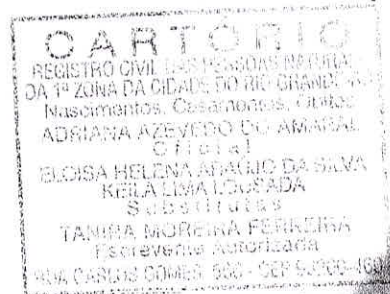 CARTÓRIO
REGISTRO CIVIL DAS PESSOAS NATURAIS
DA 1ª ZONA DA CIDADE DO RIO GRANDE-RS
Nascimentos, Casamentos, Óbitos
ADRIANA AZEVEDO DO AMARAL
Oficial
ELOISA HELENA ARAÚJO DA SILVA
KEILA LIMA LOUSADA
Substitutas
MOREIRA FERREIRA
Escrevente Autorizada
RUA CARLOS GOMES, - CEP